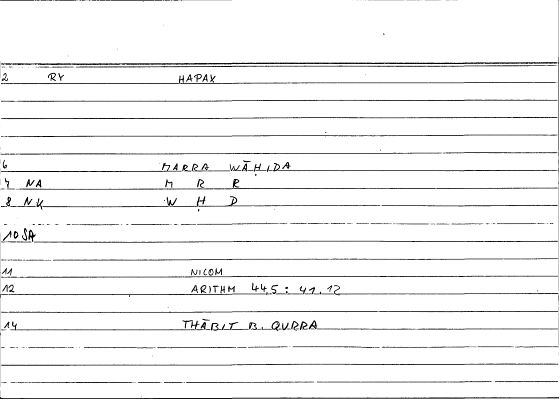 2 RY HAPAX
6 MARRA WĀḤIDA
7 NA M R R
8 NK W Ḥ D
10 SA
11 NICOM
12 ARITHM 44,5 : 41.12
14 THĀBIT B. QURRA